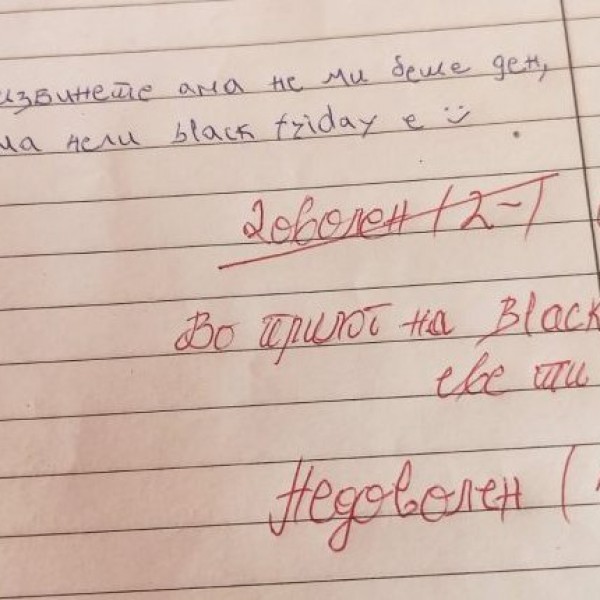 извинете ама не ми беше ден,
ма нели black friday е :)
Доволен (2-)
Во прилог на Black
еве ти
Недоволен (